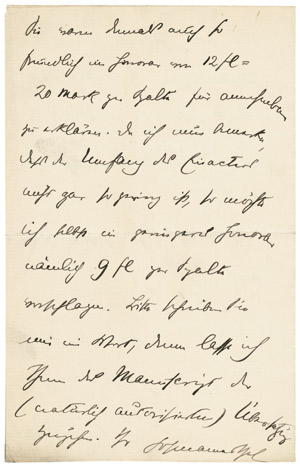 Sie waren damals auch so
freundlich ein Honorar von 12 fl =
20 Mark per Spalte für annehmbar
zu erklären. Da ich nun bemerke,
daß der Umfang des Einacters
nicht gar so gering ist, so möchte
ich selbst ein geringeres Honorar
nämlich 9 fl per Spalte
vorschlagen. Bitte schreiben Sie
mir ein Wort, dann lasse ich
Ihnen das Manuscript der
(natürlich autorisierten) Übersetzung
zugehen. Ihr Hofmannsthal